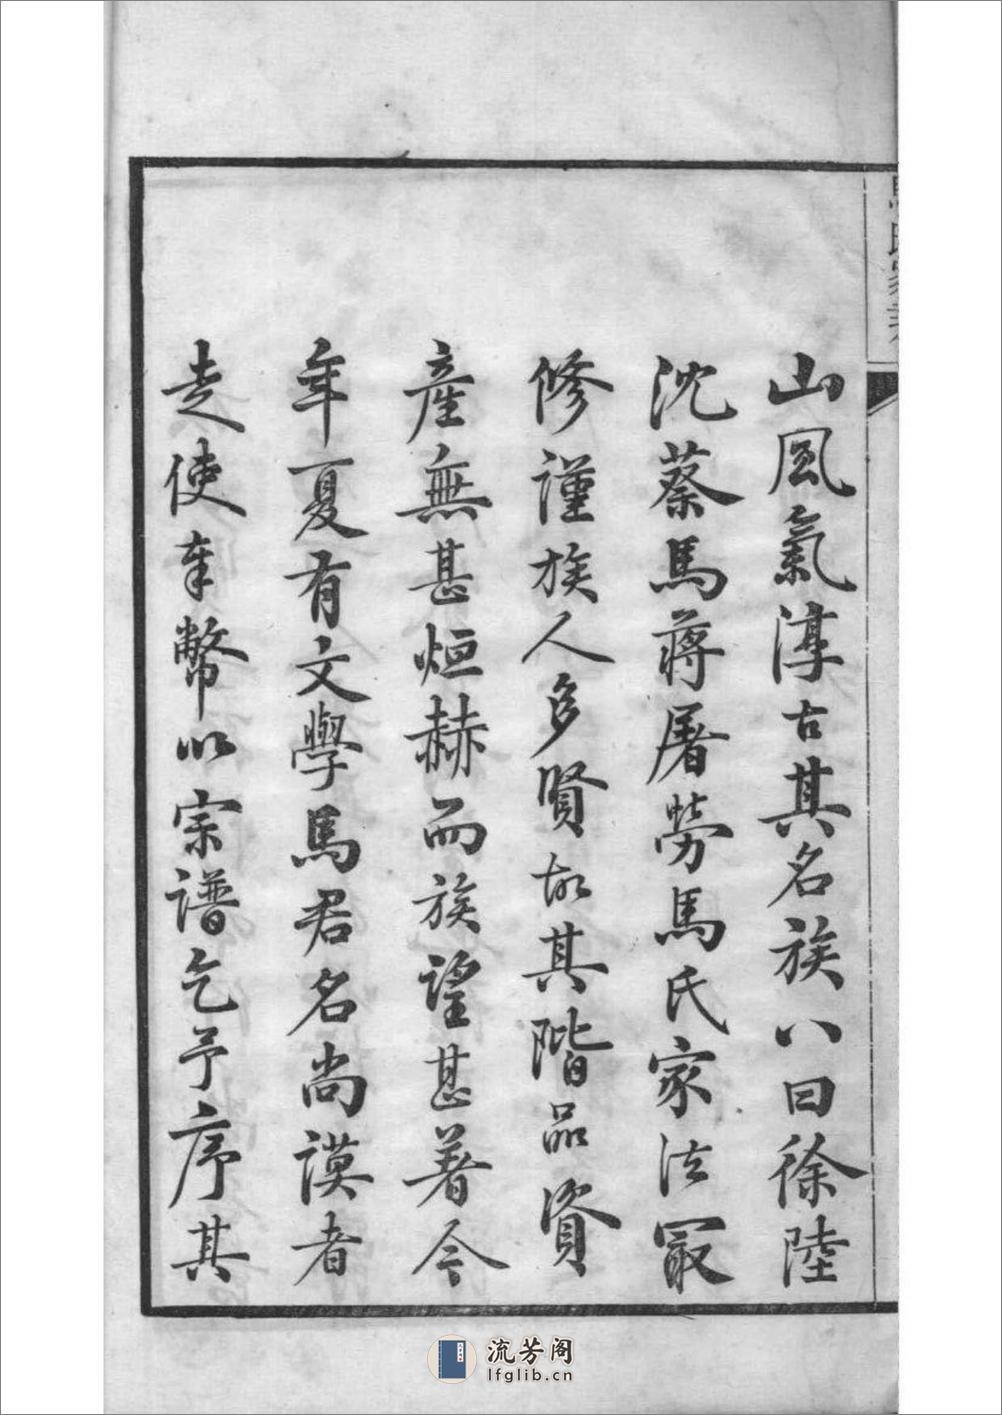 山風氣淳古其名族八曰徐陸
沈蔡馬蔣屠勞馬氏家法最
修謹族人多賢故其階品資
產無甚烜赫而族望甚著今
年夏有文學馬君名尚謨者
走使奉幣以宗譜乞予序其
流芳阁
lfglib.cn